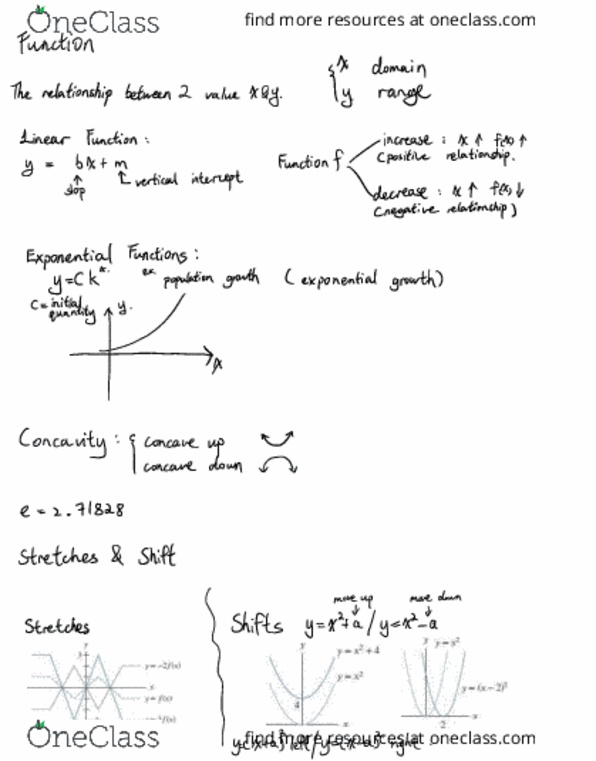 OneClass find more resources at oneclass.com
Function
The relationship between 2 value x & y. { x domain
y range
Linear Function :
y = bx + m
slop vertical intercept
Function f increase : x ↑ f(x) ↑
(positive relationship.
decrease : x ↑ f(x) ↓
(negative relationship)
Exponential Functions :
y = C k^x. ex. population growth (exponential growth)
C = initial quantity
y.
x
Concavity : { concave up
concave down
e = 2.71828
Stretches & Shift
Stretches
y
y=-2f(x)
x
y=f(x)
Shifts y = x²+a / y = x²-a
move up move down
y
y=x²+4
y=x²
4
x
y
y=x²
y=(x-2)²
x
2
OneClass find more resources at oneclass.com
left right